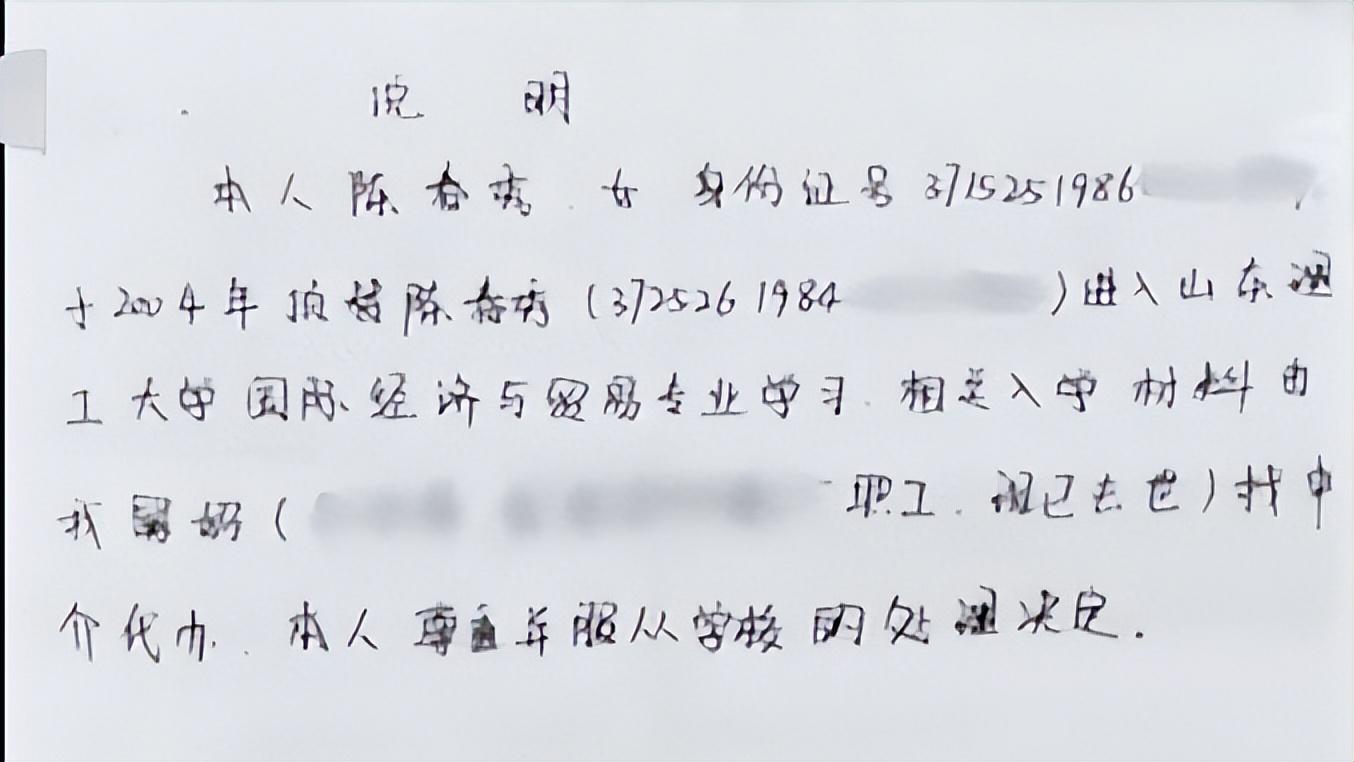 说 明
本人陈春秀.女 身份证号 3715251986
于2004年顶替陈春秀(3725261984)进入山东理
工大学国际经济与贸易专业学习.相关入学材料由
我舅妈(职工.现已去世)找中
介代办.本人尊重并服从学校的处理决定.